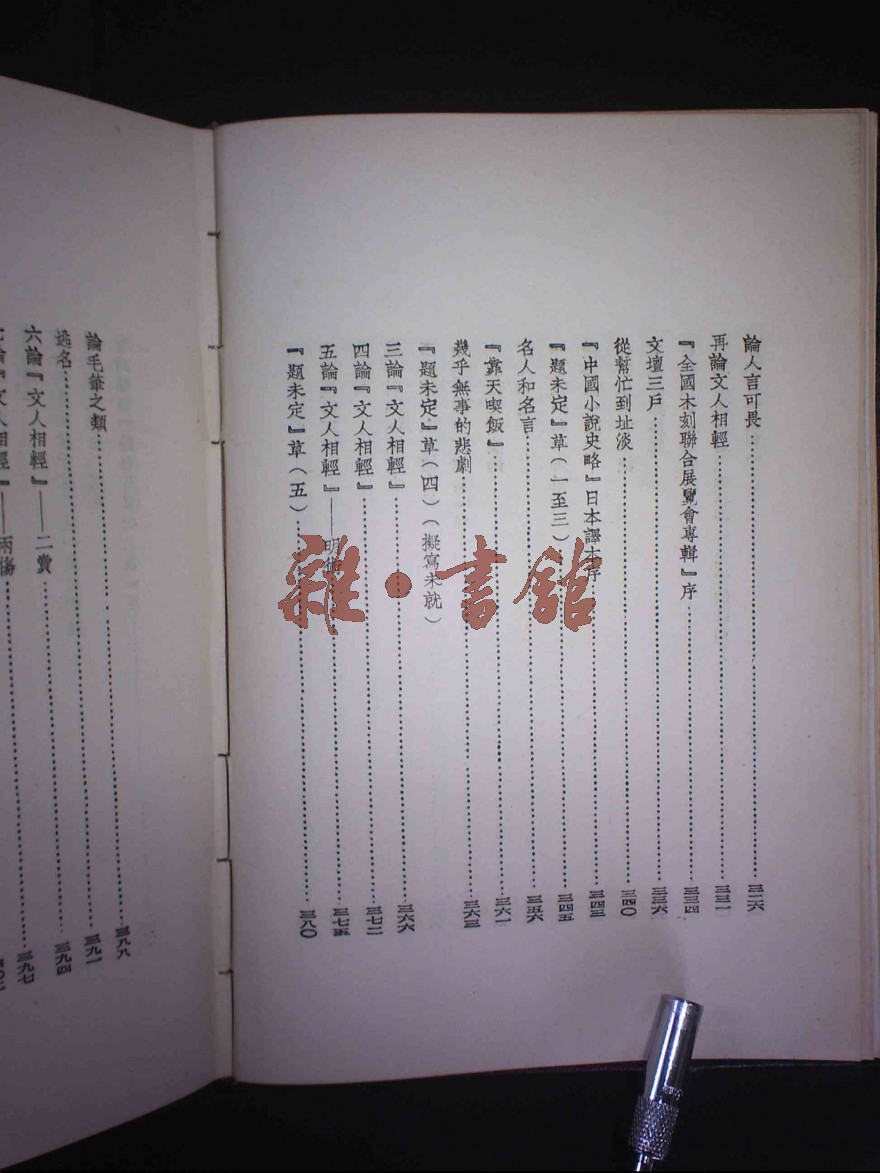 論人言可畏……三二六
再論文人相輕……三三一
『全國木刻聯合展覽會專輯』序……三三四
文壇三戶……三三六
從幫忙到扯淡……三四〇
『中國小說史略』日本譯本序……三四三
『題未定』草(一至三)……三四五
名人和名言……三五六
『靠天喫飯』……三六一
幾乎無事的悲劇……三六三
『題未定』草(四)(擬寫未就)
三論『文人相輕』……三六六
四論『文人相輕』……三七二
五論『文人相輕』——明術……三七五
『題未定』草(五)……三八〇
論毛筆之類……三八八
逃名……三九一
六論『文人相輕』——二賣……三九四
七論『文人相輕』——兩傷……三九七
雜·書館